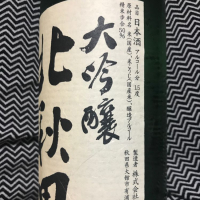 品目 日本酒 アルコール分 15度
原材料名 米(国産)、米こうじ(国産米)、醸造アルコール
精米歩合50%
大吟醸
北秋田
製造者 株式会社
秋田県大館市有浦